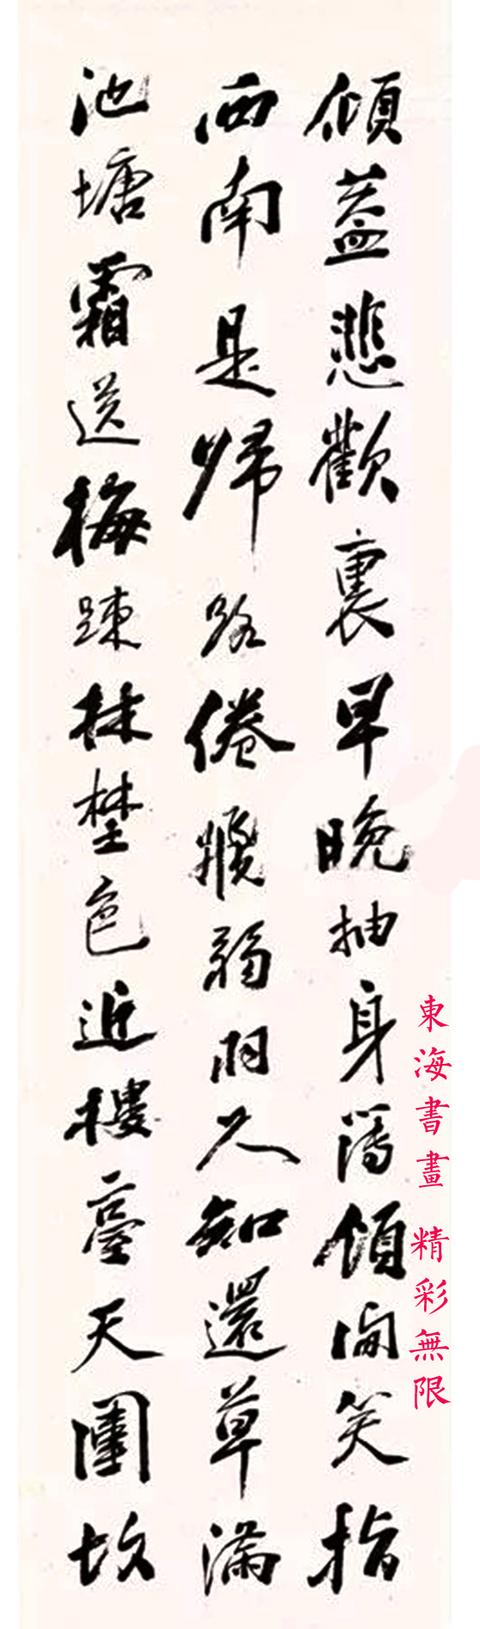 傾蓋悲歡裏早晚抽身向笑指
西南是歸路倦弱羽久知還草滿
池塘霜送梅疎林埜色近樓臺天圍故
東海書畫 精彩無限